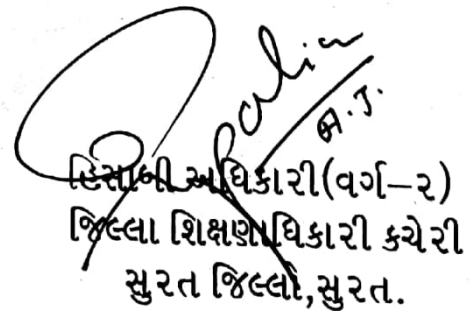 બ.જ.
હિસાબી અધિકારી(વર્ગ–૨)
જિલ્લા શિક્ષણાધિકારી કચેરી
સુરત જિલ્લો,સુરત.